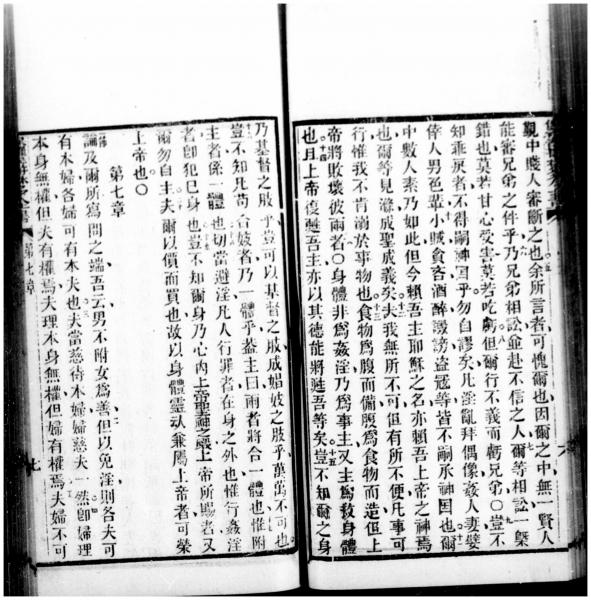 親中賤人審斷之也余所言者可愧爾也因爾之中無一賢人
能審兄弟之件乎乃兄弟相訟並赴不信之人爾等相訟一槩
錯也莫若甘心受害莫若吃虧但爾行不義而虧兄弟〇豈不
知乖戾者不得嗣神國乎勿自謬矣凡淫亂拜偶像姦人妻嬖
倖人男色輩小賊貪吝酒醉謗盜寇等皆不嗣承神国也爾
中數人素乃如此但今賴吾主耶穌之名亦賴吾上帝之神焉
也爾等見滌成聖成義矣夫我無所不可但有所不便凡事可
行惟我不肯溺於事物也食物爲腹而備腹爲食物而造但上
帝將敗壞彼兩者〇身體非爲姦淫乃爲事主又主爲救身體
也且上帝復甦吾主亦以其德能將甦吾等矣豈不知爾之身
乃基督之肢乎豈可以基督之肢成娼妓之肢乎萬萬不可也
豈不知凡苟合妓者乃一體乎蓋主曰兩者將合一體也惟附
主者係一也切當避淫凡人行罪者在身之外也惟行姦淫
者卽犯己身也豈不知爾身乃心內上帝聖之殿上帝所賜者又
爾勿自主夫爾以價而買也故以身體靈兼屬上帝者可榮
上帝也〇
第七章
論及爾所寫問之端吾云男不附女爲善但以免淫則各夫可
有本婦各婦可有本夫也夫當慈待本婦婦慈夫一然卽婦理
本身無權但夫有權焉夫理本身無權但婦有權焉夫婦不可
第七章
七